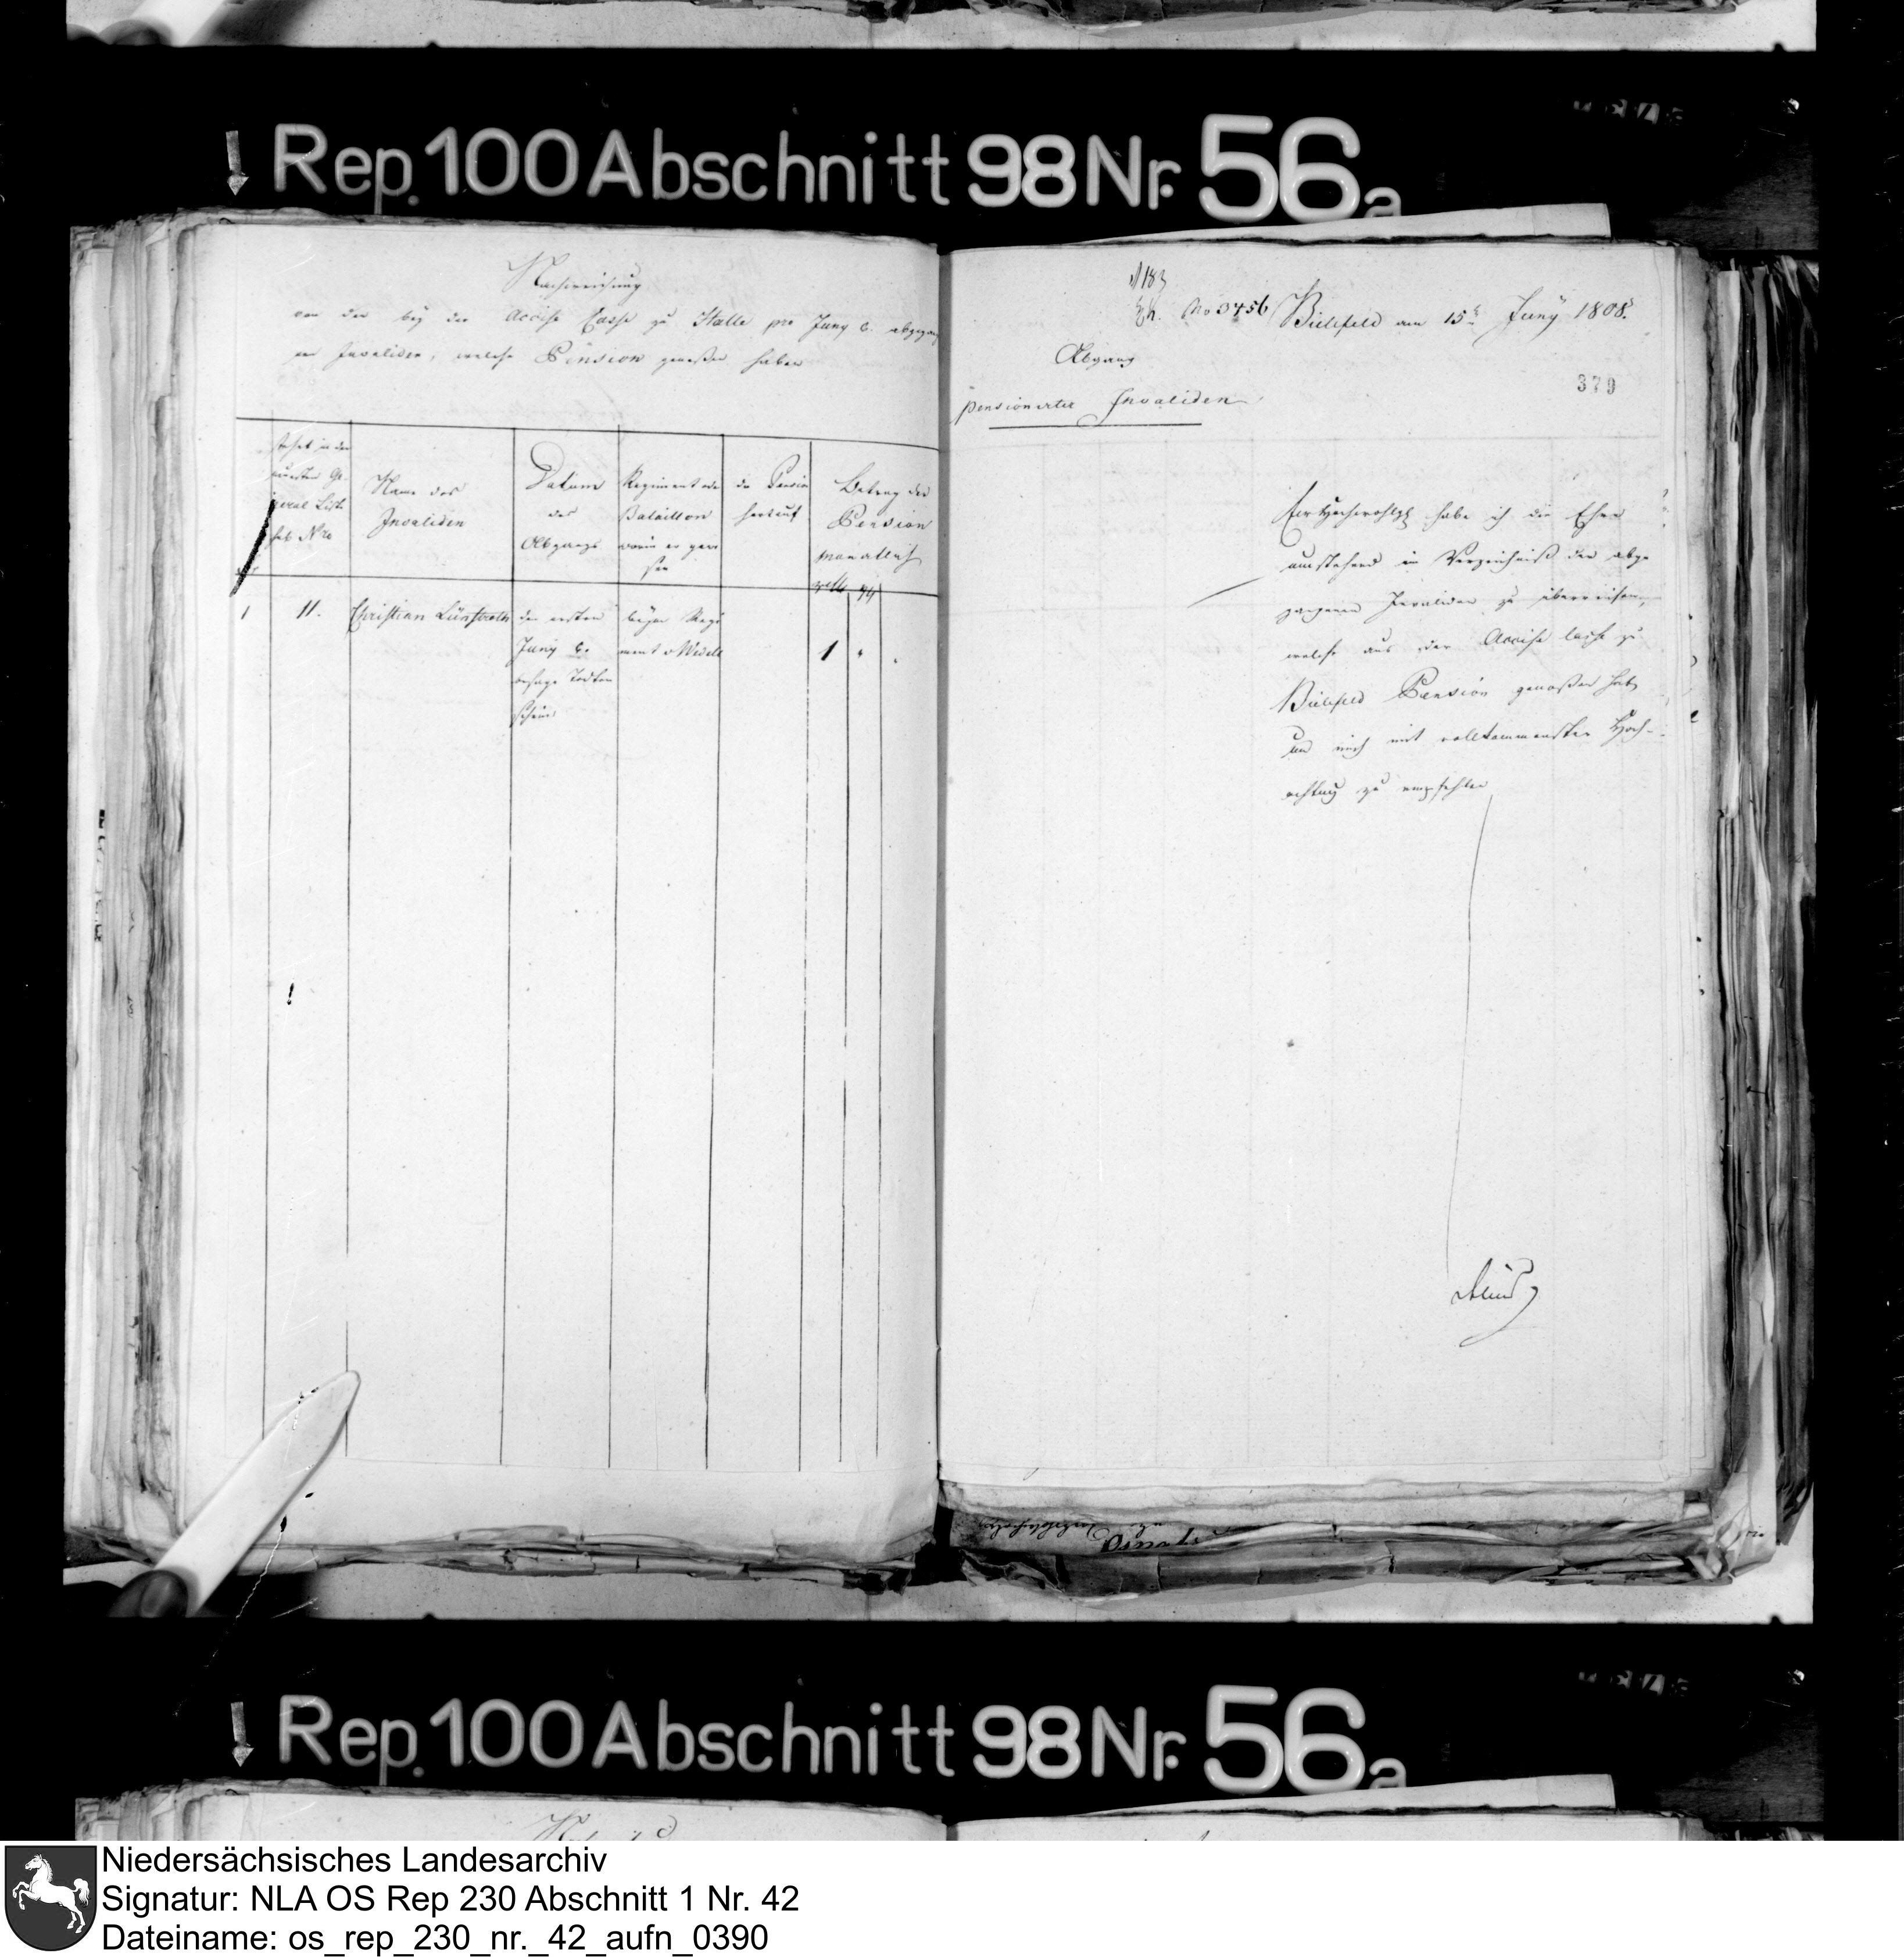 Rep. 100 Abschnitt 98 Nr. 56a
Nachweisung
von der bey der Accise Casse zu Halle pro Juny c. abgegan
nen Invaliden, welche Pension genoßen haben
stehet in der
neuesten Ge
neral Liste
sub Nro
Name des
Invaliden
Datum
des
Abgangs
Regiment oder
Bataillon
worin er gewe
sen
die Pension
hört auf
Betrag der
Pension
monatlich
1
11.
Christian
den ersten
Juny c.
Todten
schein
beym Regi
ment v Wedell
1
No 3456
Bielefeld am 15t Juny 1808.
Abgang
pensionirter Invaliden
379
Ew Hochwohlgb habe ich die Ehre
umstehend ein Verzeichniß der abge
gangenen Invaliden zu überreichen,
welche aus der Accise Casse zu
Bielefeld Pension genoßen habe
und mich mit vollkommenster Hoch-
achtung zu empfehlen
Rep. 100 Abschnitt 98 Nr. 56a
Niedersächsisches Landesarchiv
Signatur: NLA OS Rep 230 Abschnitt 1 Nr. 42
Dateiname: os_rep_230_nr._42_aufn_0390